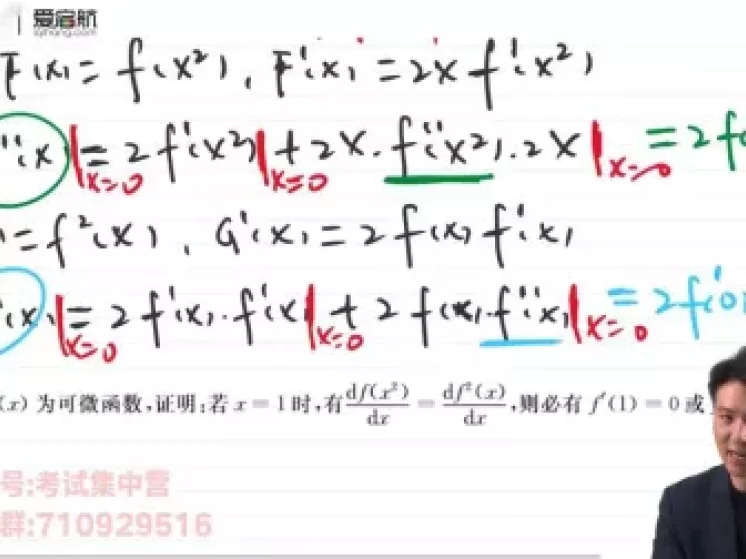 爱启航
F(x) = f(x²), F'(x) = 2x f'(x²)
''(x)|x=0 = 2f'(x²)|x=0 + 2x·f''(x²)·2x|x=0 = 2f
) = f²(x), G'(x) = 2f(x)f'(x)
'(x)|x=0 = 2f'(x)·f'(x)|x=0 + 2f(x)·f''(x)|x=0 = 2f'(0)
(x)为可微函数,证明:若x=1时,有df(x²)/dx = df²(x)/dx,则必有f'(1)=0或
号:考试集中营
群:710929516